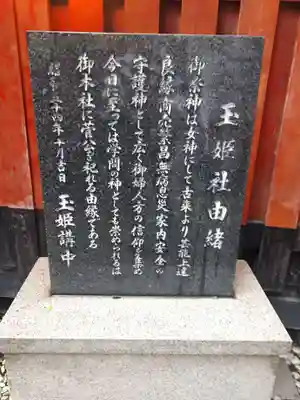 玉姫社由緒
御祭神は女神にして古来より芸能上達
良縁商売繁昌無病息災家内安全の
守護神として広く御婦人方の信仰を集め
今日に至っては学問の神としても崇められるは
御本社に菅公を祀れる由縁である
昭和三十四年十月吉日
玉姫講中